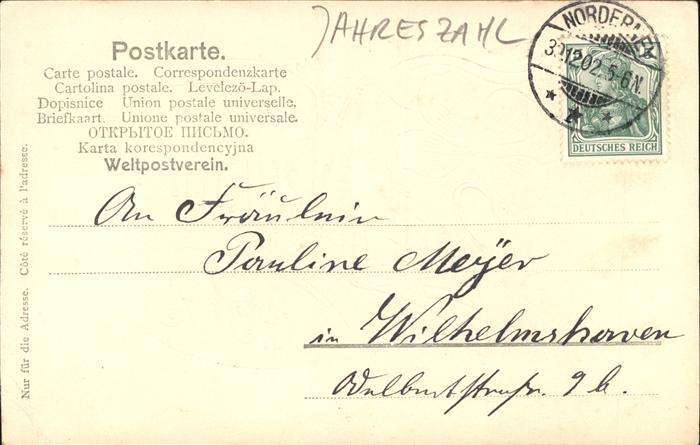 JAHRESZAHL
NORDERNEY
12.02.5-6N.
DEUTSCHES REICH
Postkarte.
Carte postale. Correspondenzkarte
Cartolina postale. Levélező-Lap.
Dopisnice Union postale universelle.
Briefkaart. Unione postale universale.
ОТКРЫТОЕ ПИСЬМО.
Karta korespondencyjna
Weltpostverein.
An Fräulein
Pauline Meyer
in Wilhelmshaven
Adalbertstraße. 9 b.
Nur für die Adresse. Côté réservé à l'adresse.